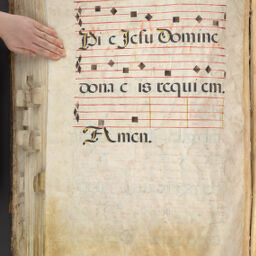 Pi e Jesu Domine
dona e is requi em.
Amen.